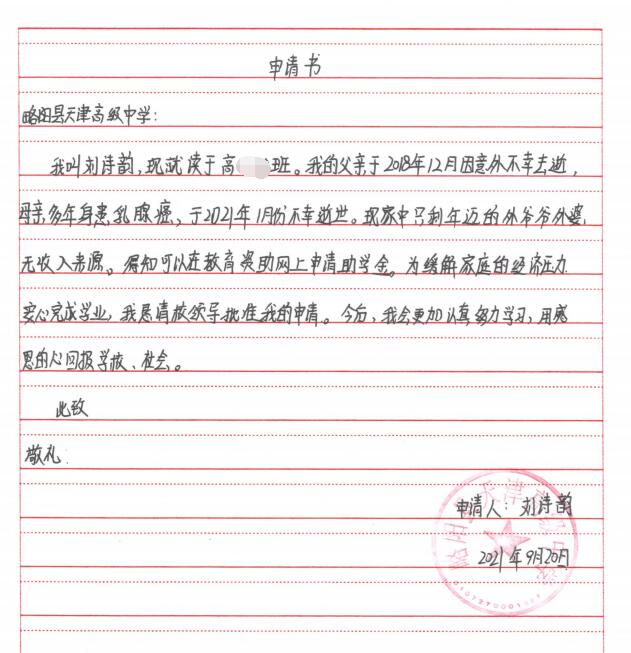 申请书
略阳县天津高级中学：
我叫刘诗韵，现就读于高班。我的父亲于2018年12月因意外不幸去逝，
母亲多年身患乳腺癌、于2021年1月份不幸逝世。现家中只剩年迈的外爷爷外婆，
无收入来源。得知可以在教育奖助网上申请助学金。为缓解家庭的经济压力
安心完成学业，我恳请校领导批准我的申请。今后，我会更加认真努力学习，用感
恩的心回报学校、社会。
此致
敬礼
申请人：刘诗韵
2021年9月20日
略阳县天津高级中学